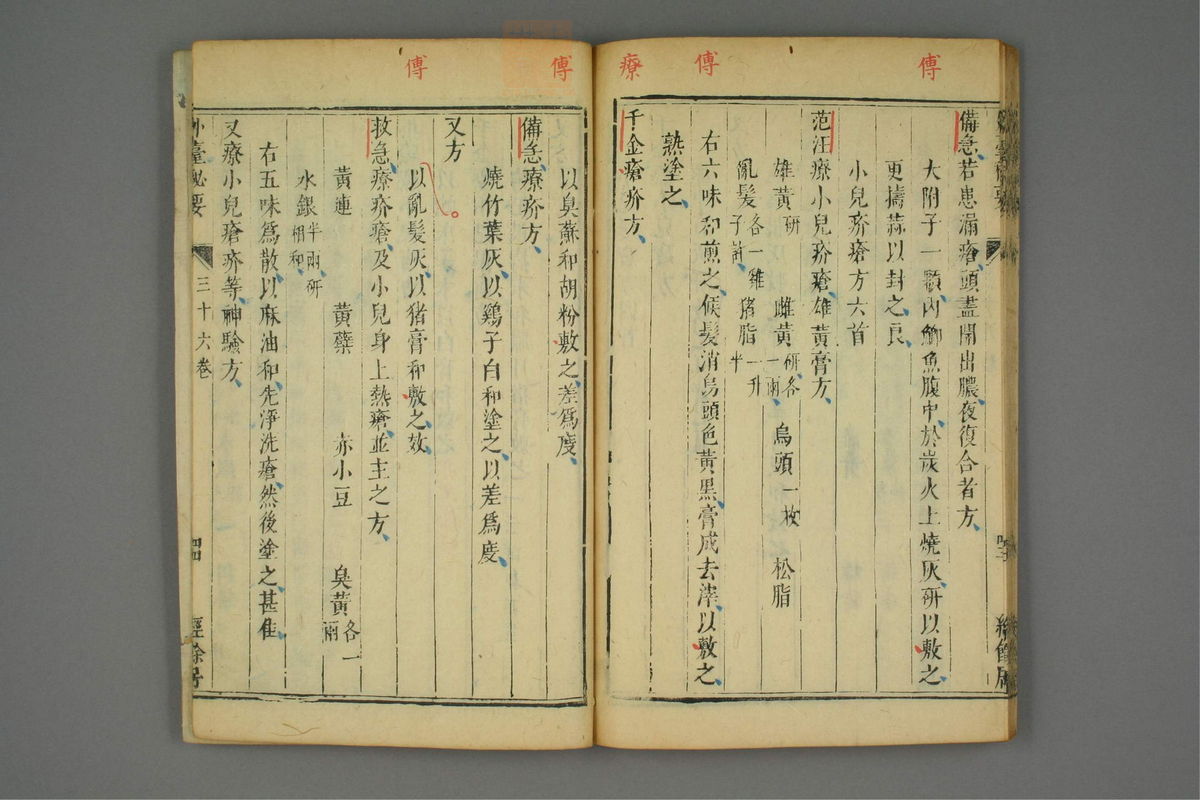 傅
傅
療
備急若患漏瘡頭盡開出膿夜復合者方
大附子一顆內鯽魚腹中於炭火上燒灰研以敷之
更擣蒜以封之良
小兒疥瘡方六首
范汪療小兒疥瘡雄黃膏方
雄黃研 雌黃研各一兩 烏頭一枚 松脂
亂髮各一雞子許 猪脂半升
右六味和煎之候髮消烏頭色黃黑膏成去滓以敷之
熟塗之
千金瘡疥方
傅
傅
以臭蘇和胡粉敷之差爲度
備急療疥方
燒竹葉灰以鷄子白和塗之以差爲度
又方
以亂髮灰以猪膏和敷之效
救急療疥瘡及小兒身上熱瘡並主之方
黃連 黃蘗 赤小豆 臭黃各一兩
水銀半兩研相和
右五味爲散以麻油和先淨洗瘡然後塗之甚佳
又療小兒瘡疥等神驗方
外臺秘要 三十六卷 經餘居